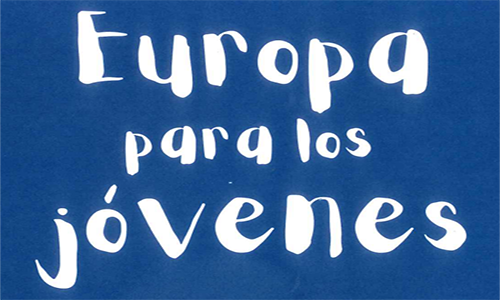 Europa
para los
jóvenes